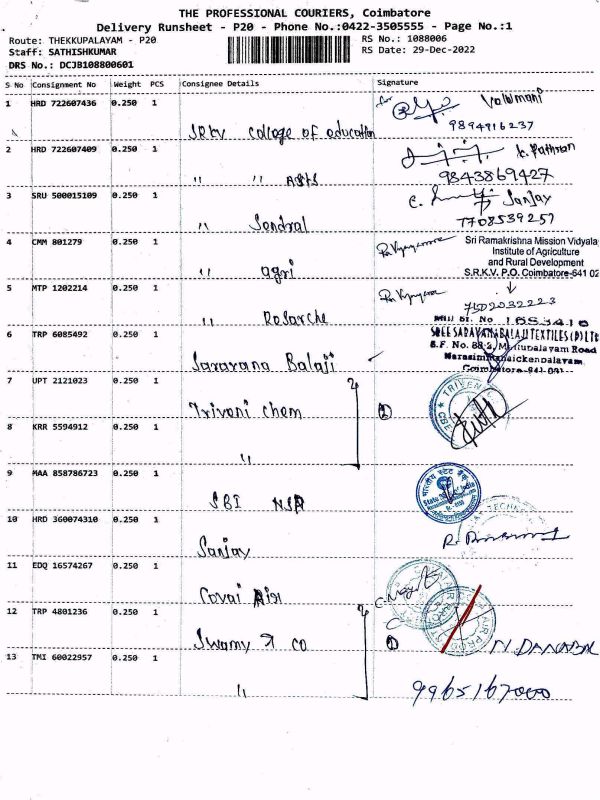 THE PROFESSIONAL COURIERS, Coimbatore
Delivery Runsheet - P20 - Phone No.:0422-3505555 - Page No.:1
Route: THEKKUPALAYAM - P20
RS No.: 1088006
Staff: SATHISHKUMAR
RS Date: 29-Dec-2022
DRS No.: DCJB108800601
S No Consignment No Weight PCS Consignee Details Signature
1 HRD 722607436 0.250 1 SRKV College of education for Valarmani
9894916237
2 HRD 722607409 0.250 1 " " Arts K. Pathran
9843869427
3 SRU 500015109 0.250 1 " Sondral C. Sanjay
7708539257
4 CMM 801279 0.250 1 " agri Sri Ramakrishna Mission Vidyala
Institute of Agriculture
and Rural Development
S.R.K.V. P.O. Coimbatore-641 02
5 MTP 1202214 0.250 1 " Rosarche
7502032223
6 TRP 6085492 0.250 1 Saravana Balaji
Mill Sl. No 1653410
SREE SARAVANABALAJI TEXTILES (P) LTD
S.F. No. 88-2, Mettupalayam Road
Narasimmanaickenpalayam
Coimbatore-641 031
7 UPT 2121023 0.250 1 Triveni chem 2
8 KRR 5594912 0.250 1 "
9 MAA 858786723 0.250 1 SBI NSR
भारतीय स्टेट बैंक
State Bank of India
10 HRD 360074310 0.250 1 Sanjay
11 EDQ 16574267 0.250 1 Covai Air
12 TRP 4801236 0.250 1 Swamy & co N. DANABAL
13 TMI 60022957 0.250 1 "
9965167000